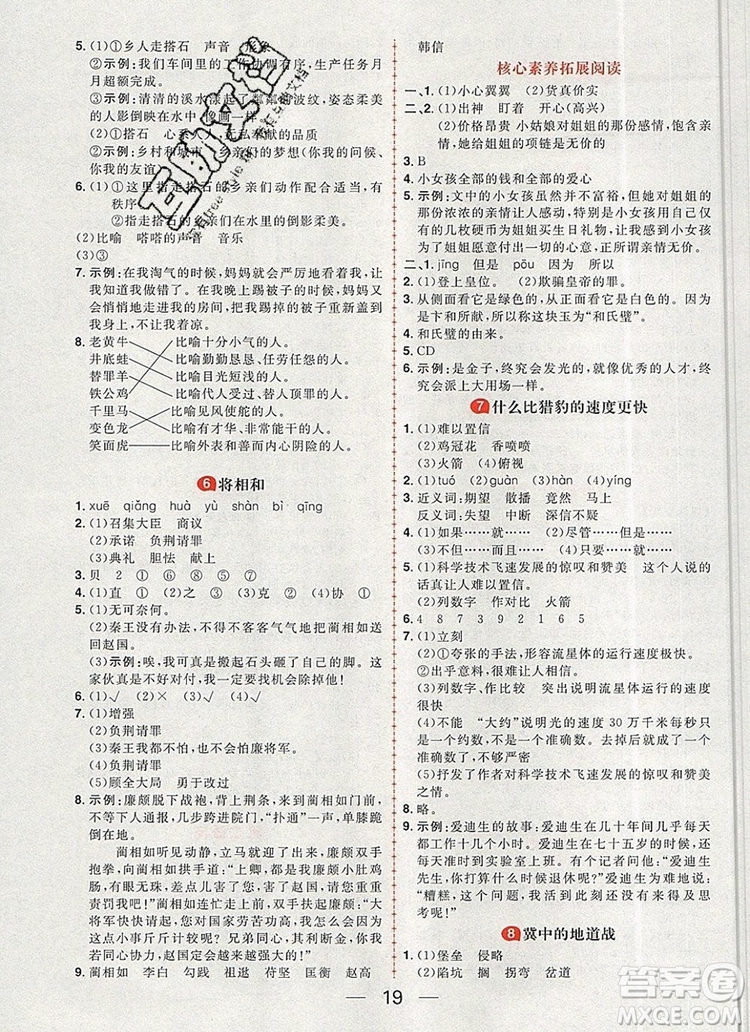 5. (1)①乡人走搭石 声音 形象
②示例：我们车间里的工作协调有序，生产任务月月超额完成。
③示例：清清的溪水漾起了粼粼的波纹，姿态柔美的人影倒映在水面，像一幅画一样。
(2)①搭石 心 无私奉献的品质
②示例：乡村和城市 乡亲们的梦想(你我的问候、你我的友谊)
6. (1)①这里搭石的乡亲们动作配合适当，有秩序。
②指走搭石的乡亲们在水里的倒影柔美。
(2)比喻 嗒嗒的声音 音乐
(3)③
7. 示例：在我淘气的时候，妈妈就会严厉地看着我，让我知道我做错了。在我晚上睡着的时候，妈妈又会悄悄地走进我的房间，把我踢掉的被子重新盖到我身上，不让我着凉。
8. 老黄牛 比喻十分小气的人。
井底蛙 比喻勤勤恳恳、任劳任怨的人。
替罪羊 比喻目光短浅的人。
铁公鸡 比喻代人受过、替人顶罪的人。
千里马 比喻见风使舵的人。
变色龙 比喻有才华、非常能干的人。
笑面虎 比喻外表和善而内心阴险的人。
6 将相和
1. xuē qiǎng huà yù shàn bì qīng
2. (1)召集大臣 商议
(2)承诺 负荆请罪
(3)典礼 胆怯 献上
3. 贝 2 ① ⑥ ② ⑤
4. (1)直 ① (2)之 ③ (3)协 ①
5. (1)无可奈何。
(2)秦王没有办法，不得不客客气气地把蔺相如送回赵国。
(3)示例：唉，我可真是搬起石头砸了自己的脚。这赵王真是不好对付，我一定要派兵，消灭他以解除心头之恨！
6. (1)√ (2)× (3)× (4)√ (5)√
7. (1)增强
(2)负荆请罪
(3)秦王我都不怕，会怕廉将军吗？
(4)负荆请罪
(5)顾全大局 勇于改过
8. 示例：廉颇脱下战袍，背上荆条，来到蔺相如门前，不等下人通报，几步跨进院门，“扑通”一声，直挺挺跪在那儿。
蔺相如听见动静，立马赶来，看见廉颇双手抱拳，愧疚地低头说道：“上卿，都怪我这个小肚鸡肠，有眼无珠，还处处与您过不去，请您重重责罚我吧！”蔺相如连忙用双手扶起廉颇：“大将军快快请起！您为国家劳苦功高，我怎么会和您计较这些小事斤斤计较，兄弟同心，其利断金，只要我们共同辅佐赵王，咱们赵国定会繁荣富强的！”
9. 蔺相如 李白 勾践 祖逖 苻坚 匡衡 赵括
韩信
核心素养拓展阅读
一、1. (1)小心翼翼 (2)货真价实
2. (1)出神 盯着 开心(高兴)
(2)价格昂贵 小姑娘对姐姐的那份感情，饱含亲情，她给姐姐的项链是无价的
3. B
4. 小女孩全部的钱和全部的爱心
5. 示例：文中的小女孩虽然并不富裕，但她对姐姐的那份浓浓的亲情让人感动，特别是小女孩用自己仅有的几枚硬币为姐姐买生日礼物，让我看到了小女孩为了姐姐愿意付出一切的心意，正所谓亲情无价。
二、1. jīng 但是 pōu 因为 所以
2. (1)登上皇位。 (2)欺骗皇帝的罪。
3. 从侧面看它是绿色的，从正面看它是白色的；为纪念卞和献玉的功绩，所以这块玉为“和氏璧”。
4. 和氏璧的由来。
5. CD
6. 示例：是金子，终究会发光的，就像优秀的人才，终究会派上大用场一样。
7 什么比猎豹的速度更快
1. (1)难以置信
(2)鸡冠花 香喷喷
(3)火箭 (4)俯视
2. (1)dì (2)guān (3)hàn (4)yíng
3. 近义词：期望 散播 竟然 马上
反义词：失望 中断 深信不疑
4. (1)如果……就…… (2)尽管……但……
(3)不但……而且…… (4)只要……就……
5. (1)科学技术飞速发展的惊叹和赞美 这个人说的话真让人难以置信。
(2)列数字 作对比 火箭
6. 4 8 7 3 9 2 1 6 5
7. (1)立刻
(2)①夸张的手法，形容流星体的运行速度极快。
②出乎意料，很难相信流星体运行的速度。
(3)列数字
(4)不能 “大约”说明光的速度 30 万千米每秒只是一个约数，不是一个准确数。去掉后，就变成了一个准确数了，不够严谨。
(5)抒发了作者对科学技术飞速发展的惊叹和赞美之情。
8. 略。
9. 示例：爱迪生的故事：爱迪生在几十年间几乎每天都工作十几个小时。爱迪生在七十五岁的时候，依然每天准时到实验室上班。一个记者问：“爱迪生先生，你打算什么时候退休呢？”爱迪生为难地说：“糟糕，这个问题，我活到此刻还没来得及思考呢！”
8 冀中的地道战
1. (1)堡垒 侵略
(2)陷坑 搁 拐弯 岔道
19
答案圈
MXQE.COM